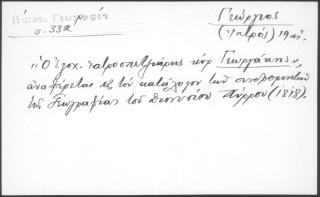 Πύρρου Γεωγραφία
σ. 33α
Γεώργιος
(Ἰατρός) 19 αἰ.
«Ὁ ἐλλογ. ἰατροσπετζιάρης κὺρ Γεωργάκης»,
ἀναφέρεται εἰς τὸν κατάλογον τῶν συνδρομητῶν
τῆς Γεωγραφίας τοῦ Διονυσίου Πύρρου (1818).